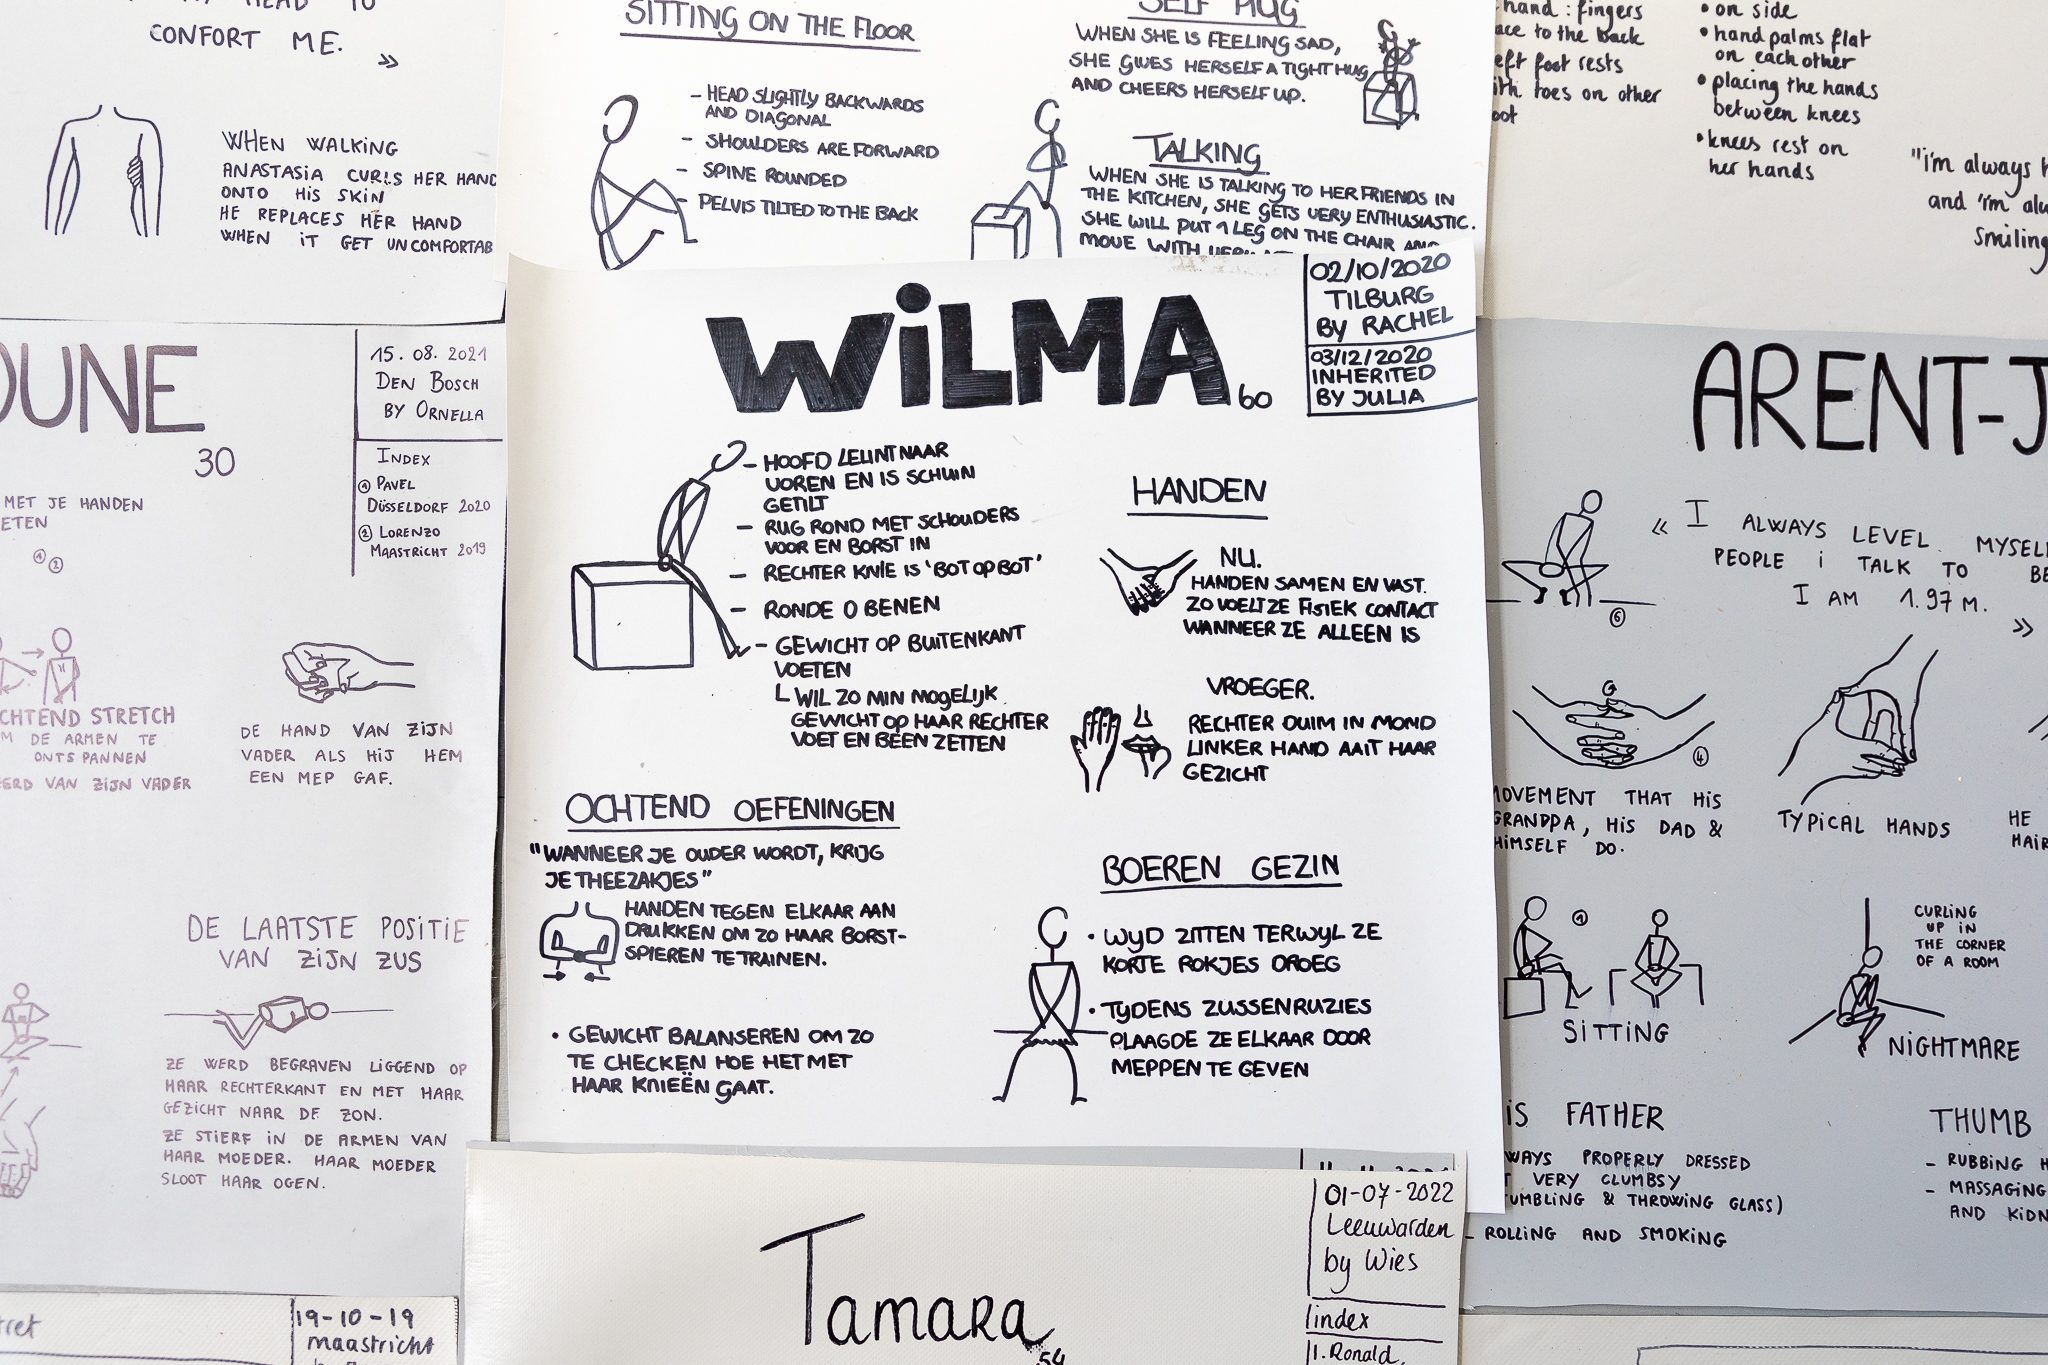 CONFORT ME.
»
WHEN WALKING
ANASTASIA CURLS HER HAND
ONTO HIS SKIN
HE REPLACES HER HAND
WHEN IT GET UNCOMFORTAB
SITTING ON THE FLOOR
- HEAD SLIGHTLY BACKWARDS
AND DIAGONAL
- SHOULDERS ARE FORWARD
- SPINE ROUNDED
- PELVIS TILTED TO THE BACK
SELF HUG
WHEN SHE IS FEELING SAD,
SHE GIVES HERSELF A TIGHT HUG
AND CHEERS HERSELF UP.
TALKING
WHEN SHE IS TALKING TO HER FRIENDS IN
THE KITCHEN, SHE GETS VERY ENTHUSIASTIC.
SHE WILL PUT 1 LEG ON THE CHAIR AND
MOVE WITH
hand: fingers
to the back
foot rests
toes on other
• on side
• hand palms flat
on each other
• placing the hands
between knees
• knees rest on
her hands
"i'm always
and i'm
smiling
OUNE
30
15. 08. 2021
DEN BOSCH
BY ORNELLA
INDEX
① PAVEL
DÜSSELDORF 2020
② LORENZO
MAASTRICHT 2019
MET JE HANDEN
ETEN
① ②
CHTEND STRETCH
DE ARMEN TE
ONTSPANNEN
EERD VAN ZIJN VADER
DE HAND VAN ZIJN
VADER ALS HIJ HEM
EEN MEP GAF.
DE LAATSTE POSITIE
VAN ZIJN ZUS
ZE WERD BEGRAVEN LIGGEND OP
HAAR RECHTERKANT EN MET HAAR
GEZICHT NAAR DE ZON.
ZE STIERF IN DE ARMEN VAN
HAAR MOEDER. HAAR MOEDER
SLOOT HAAR OGEN.
WILMA
60
02/10/2020
TILBURG
BY RACHEL
03/12/2020
INHERITED
BY JULIA
- HOOFD LEUNT NAAR
VOREN EN IS SCHUIN
GETILT
- RUG ROND MET SCHOUDERS
VOOR EN BORST IN
- RECHTER KNIE IS 'BOT OP BOT'
- RONDE O BENEN
- GEWICHT OP BUITENKANT
VOETEN
L WIL ZO MIN MOGELIJK
GEWICHT OP HAAR RECHTER
VOET EN BEEN ZETTEN
OCHTEND OEFENINGEN
"WANNEER JE OUDER WORDT, KRIJG
JE THEEZAKJES"
HANDEN TEGEN ELKAAR AAN
DRUKKEN OM ZO HAAR BORST-
SPIEREN TE TRAINEN.
• GEWICHT BALANSEREN OM ZO
TE CHECKEN HOE HET MET
HAAR KNIEËN GAAT.
HANDEN
NU.
HANDEN SAMEN EN VAST.
ZO VOELT ZE FISIEK CONTACT
WANNEER ZE ALLEEN IS
VROEGER.
RECHTER DUIM IN MOND
LINKER HAND AAIT HAAR
GEZICHT
BOEREN GEZIN
• WIJD ZITTEN TERWIJL ZE
KORTE ROKJES DROEG
• TIJDENS ZUSSENRUZIES
PLAAGDE ZE ELKAAR DOOR
MEPPEN TE GEVEN
ARENT-J
« I ALWAYS LEVEL MYSEL
PEOPLE I TALK TO BE
I AM 1.97 M.
»
⑥
④
MOVEMENT THAT HIS
GRANDPA, HIS DAD &
HIMSELF DO.
TYPICAL HANDS
HE
HAIR
①
SITTING
CURLING
UP IN
THE CORNER
OF A ROOM
NIGHTMARE
IS FATHER
WAYS PROPERLY DRESSED
VERY CLUMSY
UMBLING & THROWING GLASS)
- ROLLING AND SMOKING
THUMB
- RUBBING H
- MASSAGING
AND KIDN
Tamara
54
01-07-2022
Leeuwarden
by Wies
index
1. Ronald,
19-10-19
maastricht